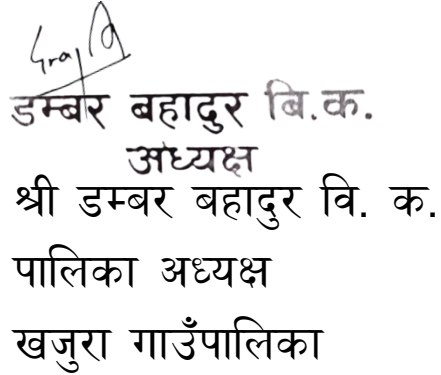 डम्बर बहादुर बि.क.
अध्यक्ष
श्री डम्बर बहादुर वि. क.
पालिका अध्यक्ष
खजुरा गाउँपालिका